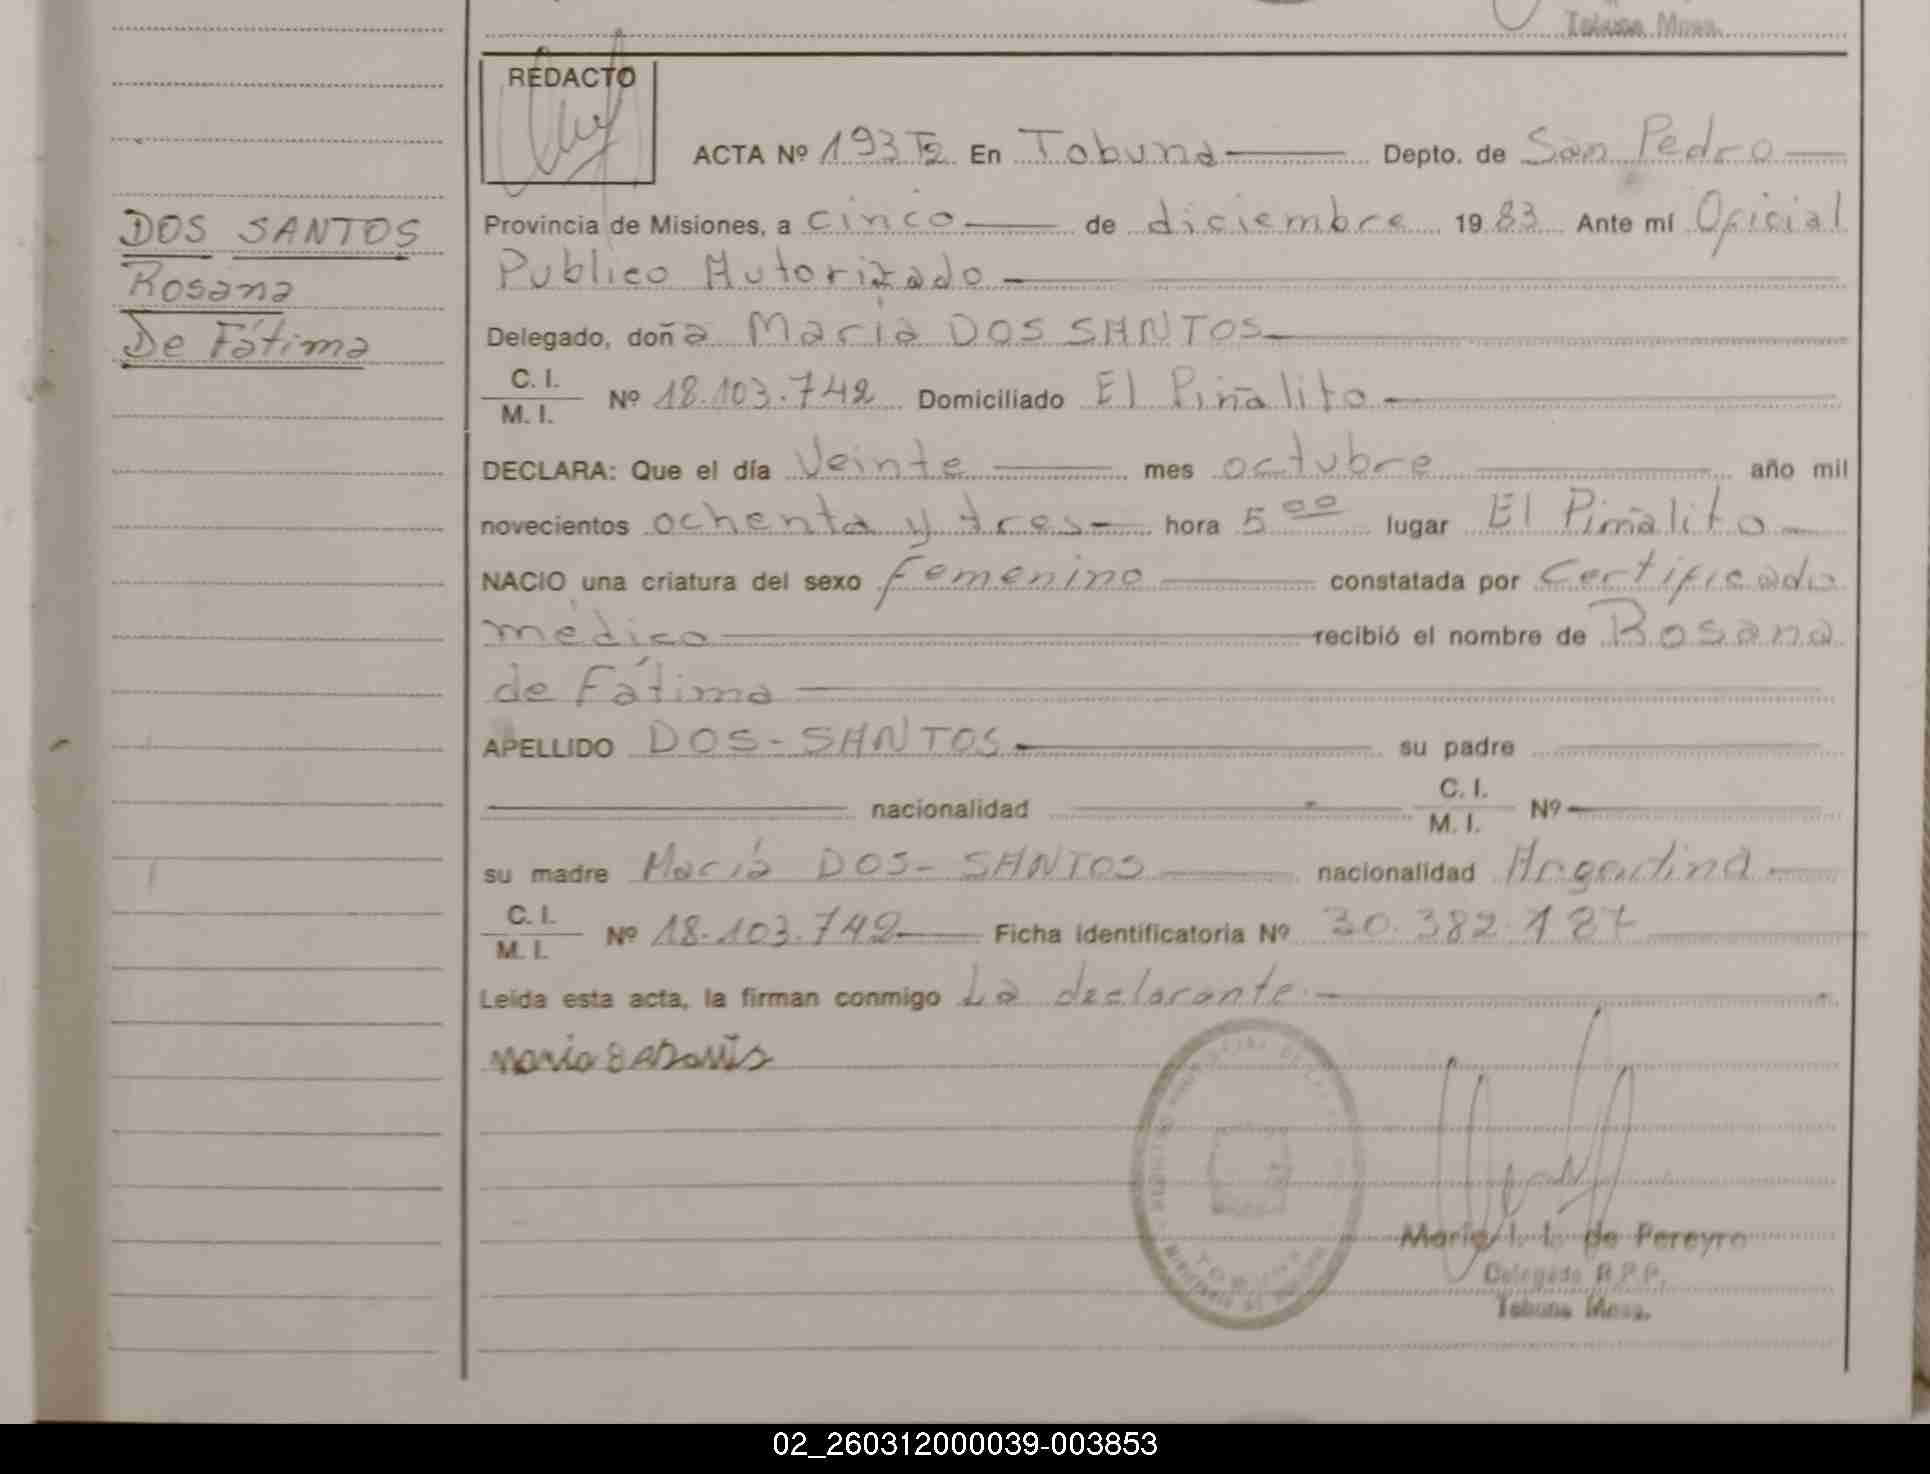 Tobuna Mnes.
REDACTO
ACTA Nº 193 T2 En Tobuna Depto. de San Pedro
DOS SANTOS
Rosana
De Fátima
Provincia de Misiones, a cinco de diciembre 19 83 Ante mí Oficial
Publico Autorizado
Delegado, doña Maria DOS SANTOS
C. I.
M. I. Nº 18.103.742 Domiciliado El Piñalito
DECLARA: Que el día Veinte mes octubre año mil
novecientos ochenta y tres hora 5 00 lugar El Piñalito
NACIO una criatura del sexo femenino constatada por Certificado
médico recibió el nombre de Rosana
de Fátima
APELLIDO DOS-SANTOS su padre
nacionalidad C. I.
M. I. Nº
su madre María DOS-SANTOS nacionalidad Argentina
C. I.
M. I. Nº 18.103.742 Ficha identificatoria Nº 30.382.187
Leída esta acta, la firman conmigo La declarante
María I. L. de Pereyra
Delegada R.P.P.
Tobuna Mnes.
02_260312000039-003853